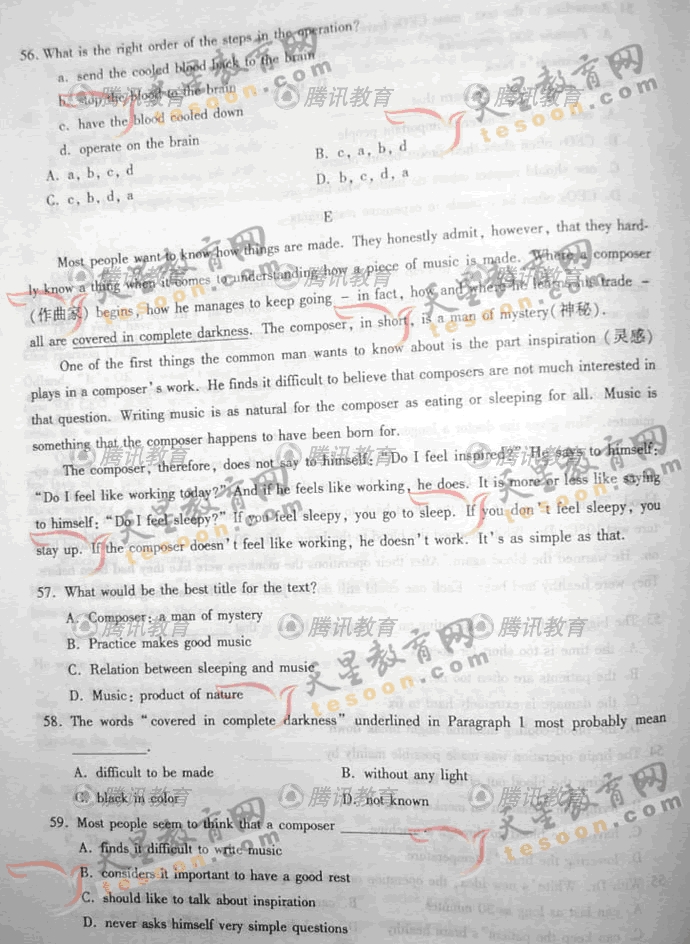 56. What is the right order of the steps in the operation?
a. send the cooled blood back to the brain
b. stop the blood to the brain
c. have the blood cooled down
d. operate on the brain
A. a, b, c, d
B. c, a, b, d
C. c, b, d, a
D. b, c, d, a
E
Most people want to know how things are made. They honestly admit, however, that they hard-
ly know a thing when it comes to understanding how a piece of music is made. Where a composer
(作曲家) begins, how he manages to keep going – in fact, how and where he learns his trade –
all are covered in complete darkness. The composer, in short, is a man of mystery(神秘).
One of the first things the common man wants to know about is the part inspiration (灵感)
plays in a composer's work. He finds it difficult to believe that composers are not much interested in
that question. Writing music is as natural for the composer as eating or sleeping for all. Music is
something that the composer happens to have been born for.
The composer, therefore, does not say to himself: "Do I feel inspired?" He says to himself:
"Do I feel like working today?" And if he feels like working, he does. It is more or less like saying
to himself: "Do I feel sleepy?" If you feel sleepy, you go to sleep. If you don't feel sleepy, you
stay up. If the composer doesn't feel like working, he doesn't work. It's as simple as that.
57. What would be the best title for the text?
A. Composer: a man of mystery
B. Practice makes good music
C. Relation between sleeping and music
D. Music: product of nature
58. The words "covered in complete darkness" underlined in Paragraph 1 most probably mean
________.
A. difficult to be made
B. without any light
C. black in color
D. not known
59. Most people seem to think that a composer ________ .
A. finds it difficult to write music
B. considers it important to have a good rest
C. should like to talk about inspiration
D. never asks himself very simple questions
天星教育网
tesoon.com
腾讯教育